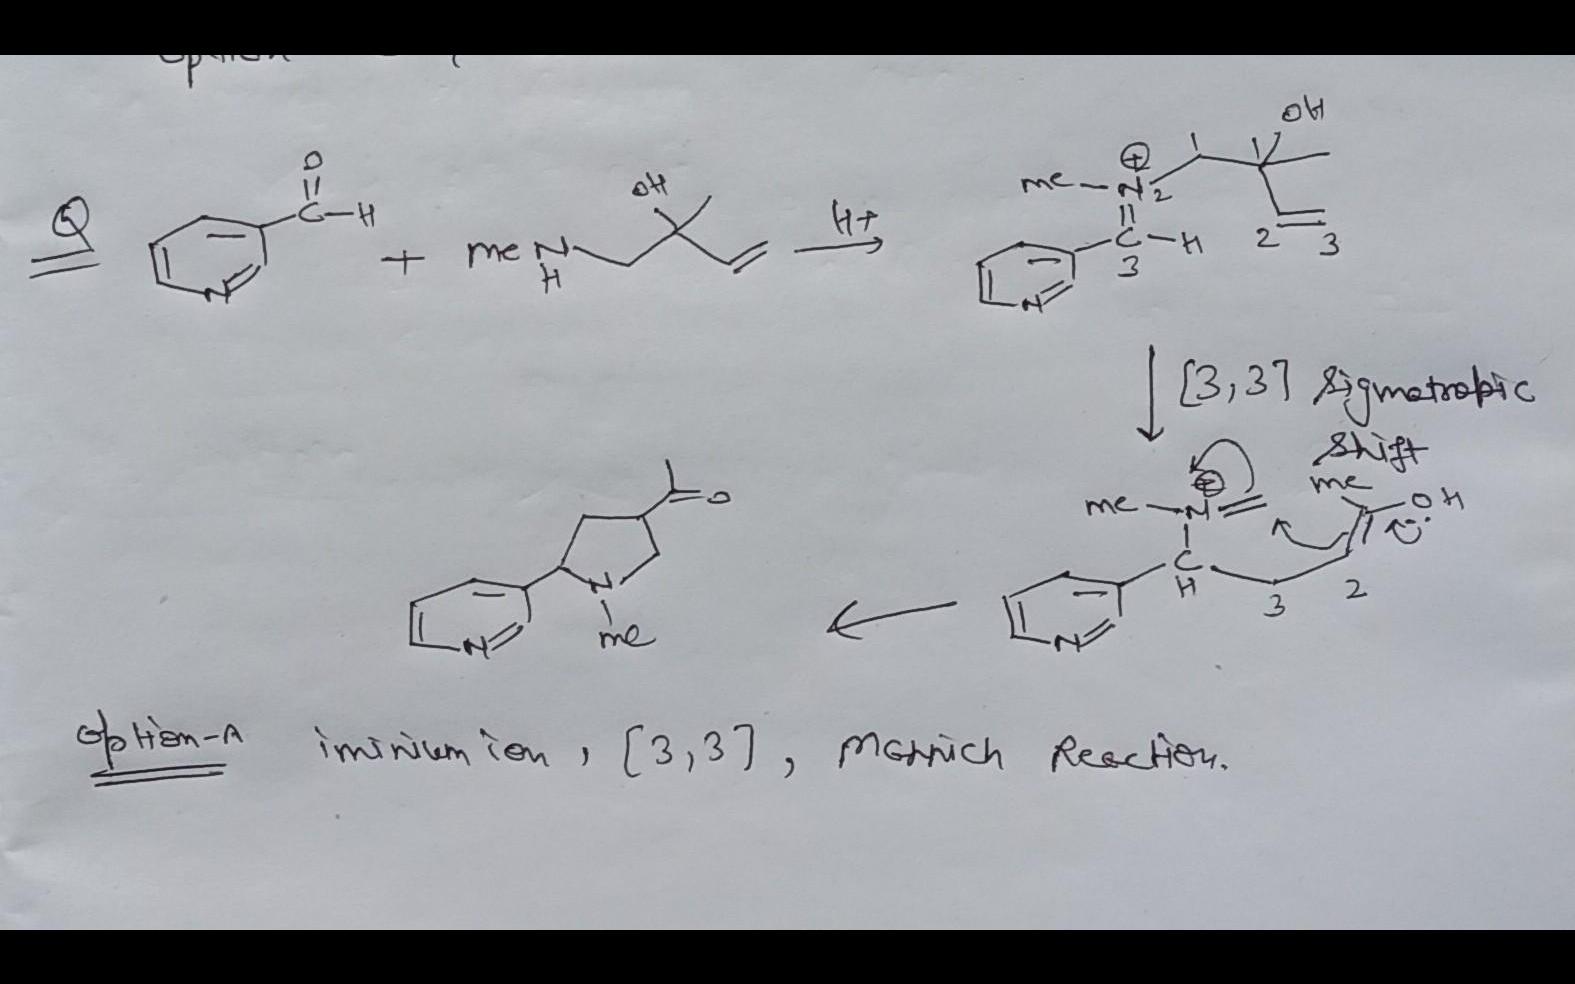 option
Q
O
C-H
N
+
me N
H
OH
H+
me-N
+
1
1
OH
2
C-H
3
2
3
N
[3,3] Sigmatropic
Shift
me-N
+
me
OH
C
H
3
2
N
O
N
me
N
Option-A iminium ion, [3,3], Mannich Reaction.